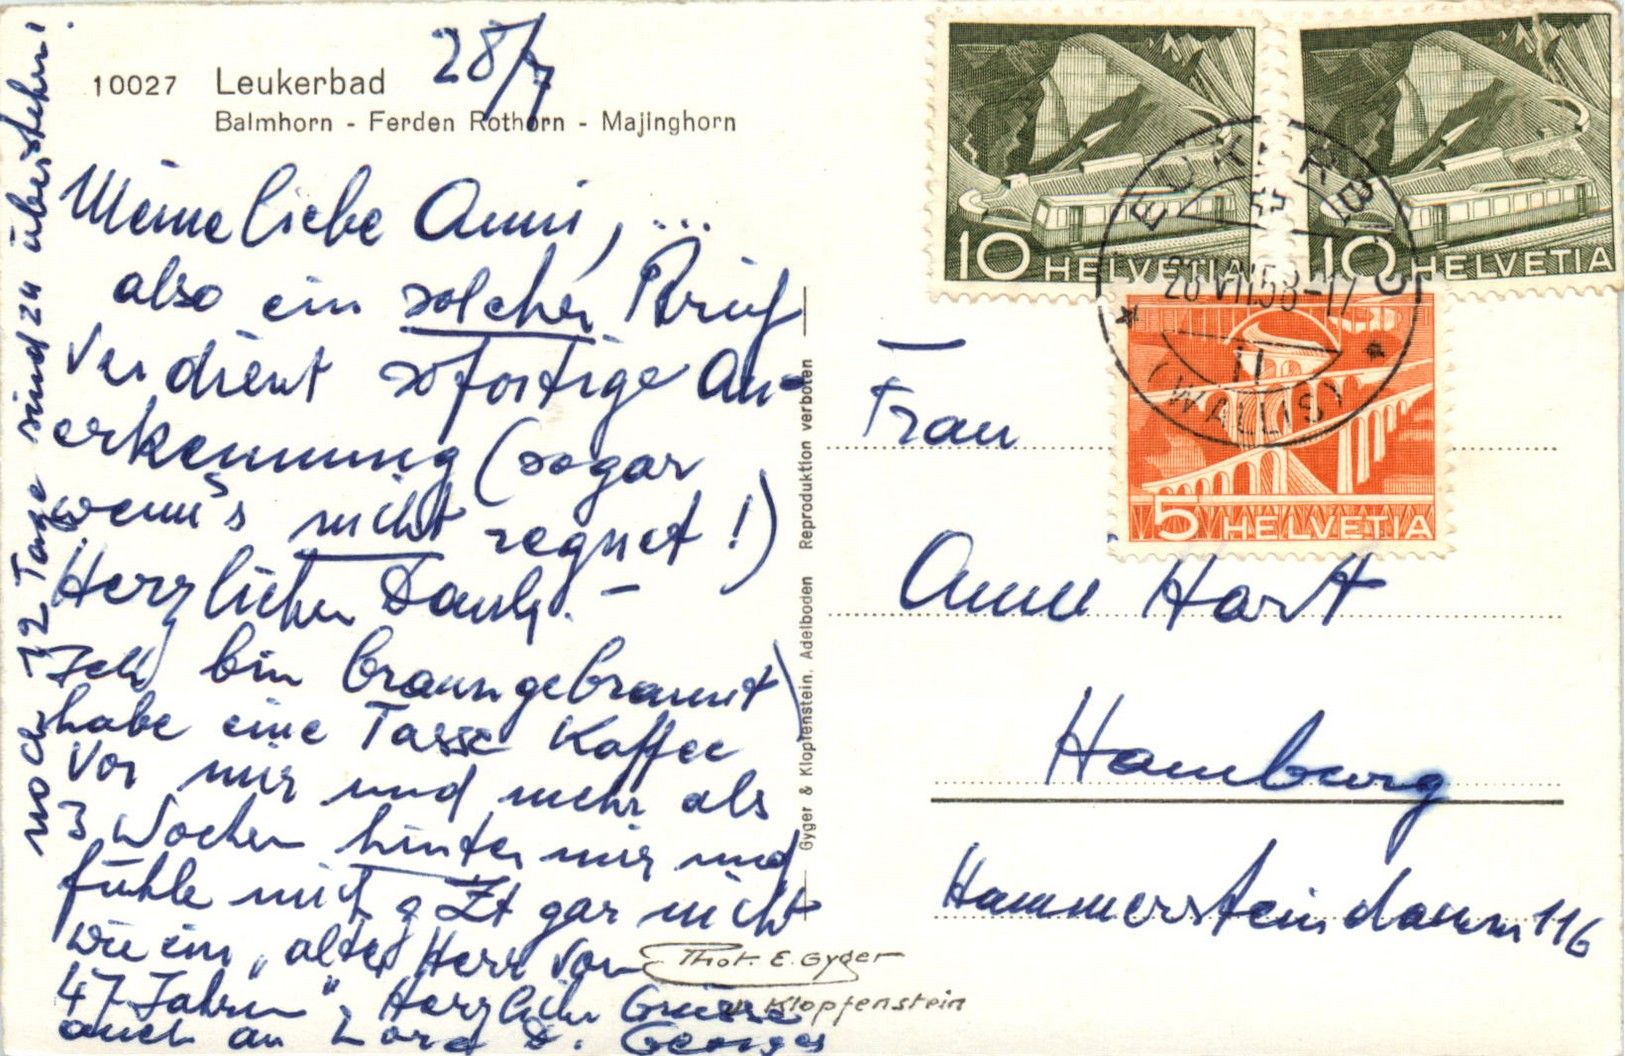 10027 Leukerbad
28/7
Balmhorn - Ferden Rothorn - Majinghorn
Meine liebe Anni, ...
also ein solcher Brief
verdient sofortige An-
erkennung (sogar
wenn's nicht regnet!)
Herzlichen Dank. -
Ich bin braungebrannt,
habe eine Tasse Kaffee
vor mir und mehr als
3 Wochen hinter mir und
fühle mich z Zt gar nicht
wie ein "alter Herr von
47 Jahren". Herzliche Grüsse
auch an Lord D. Georges
noch 12 Tage sind zu überstehen!
Gyger & Klopfenstein, Adelboden Reproduktion verboten
Phot. E. Gyger
u. Klopfenstein
10 HELVETIA
10 HELVETIA
5 HELVETIA
LEUKERBAD
28.VII.58-17
11
(WALLIS)
Frau
Anni Hart
Hamburg
Hammersteindamm 116